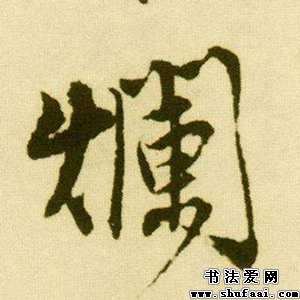 爛
书法爱网
www.shufaai.com